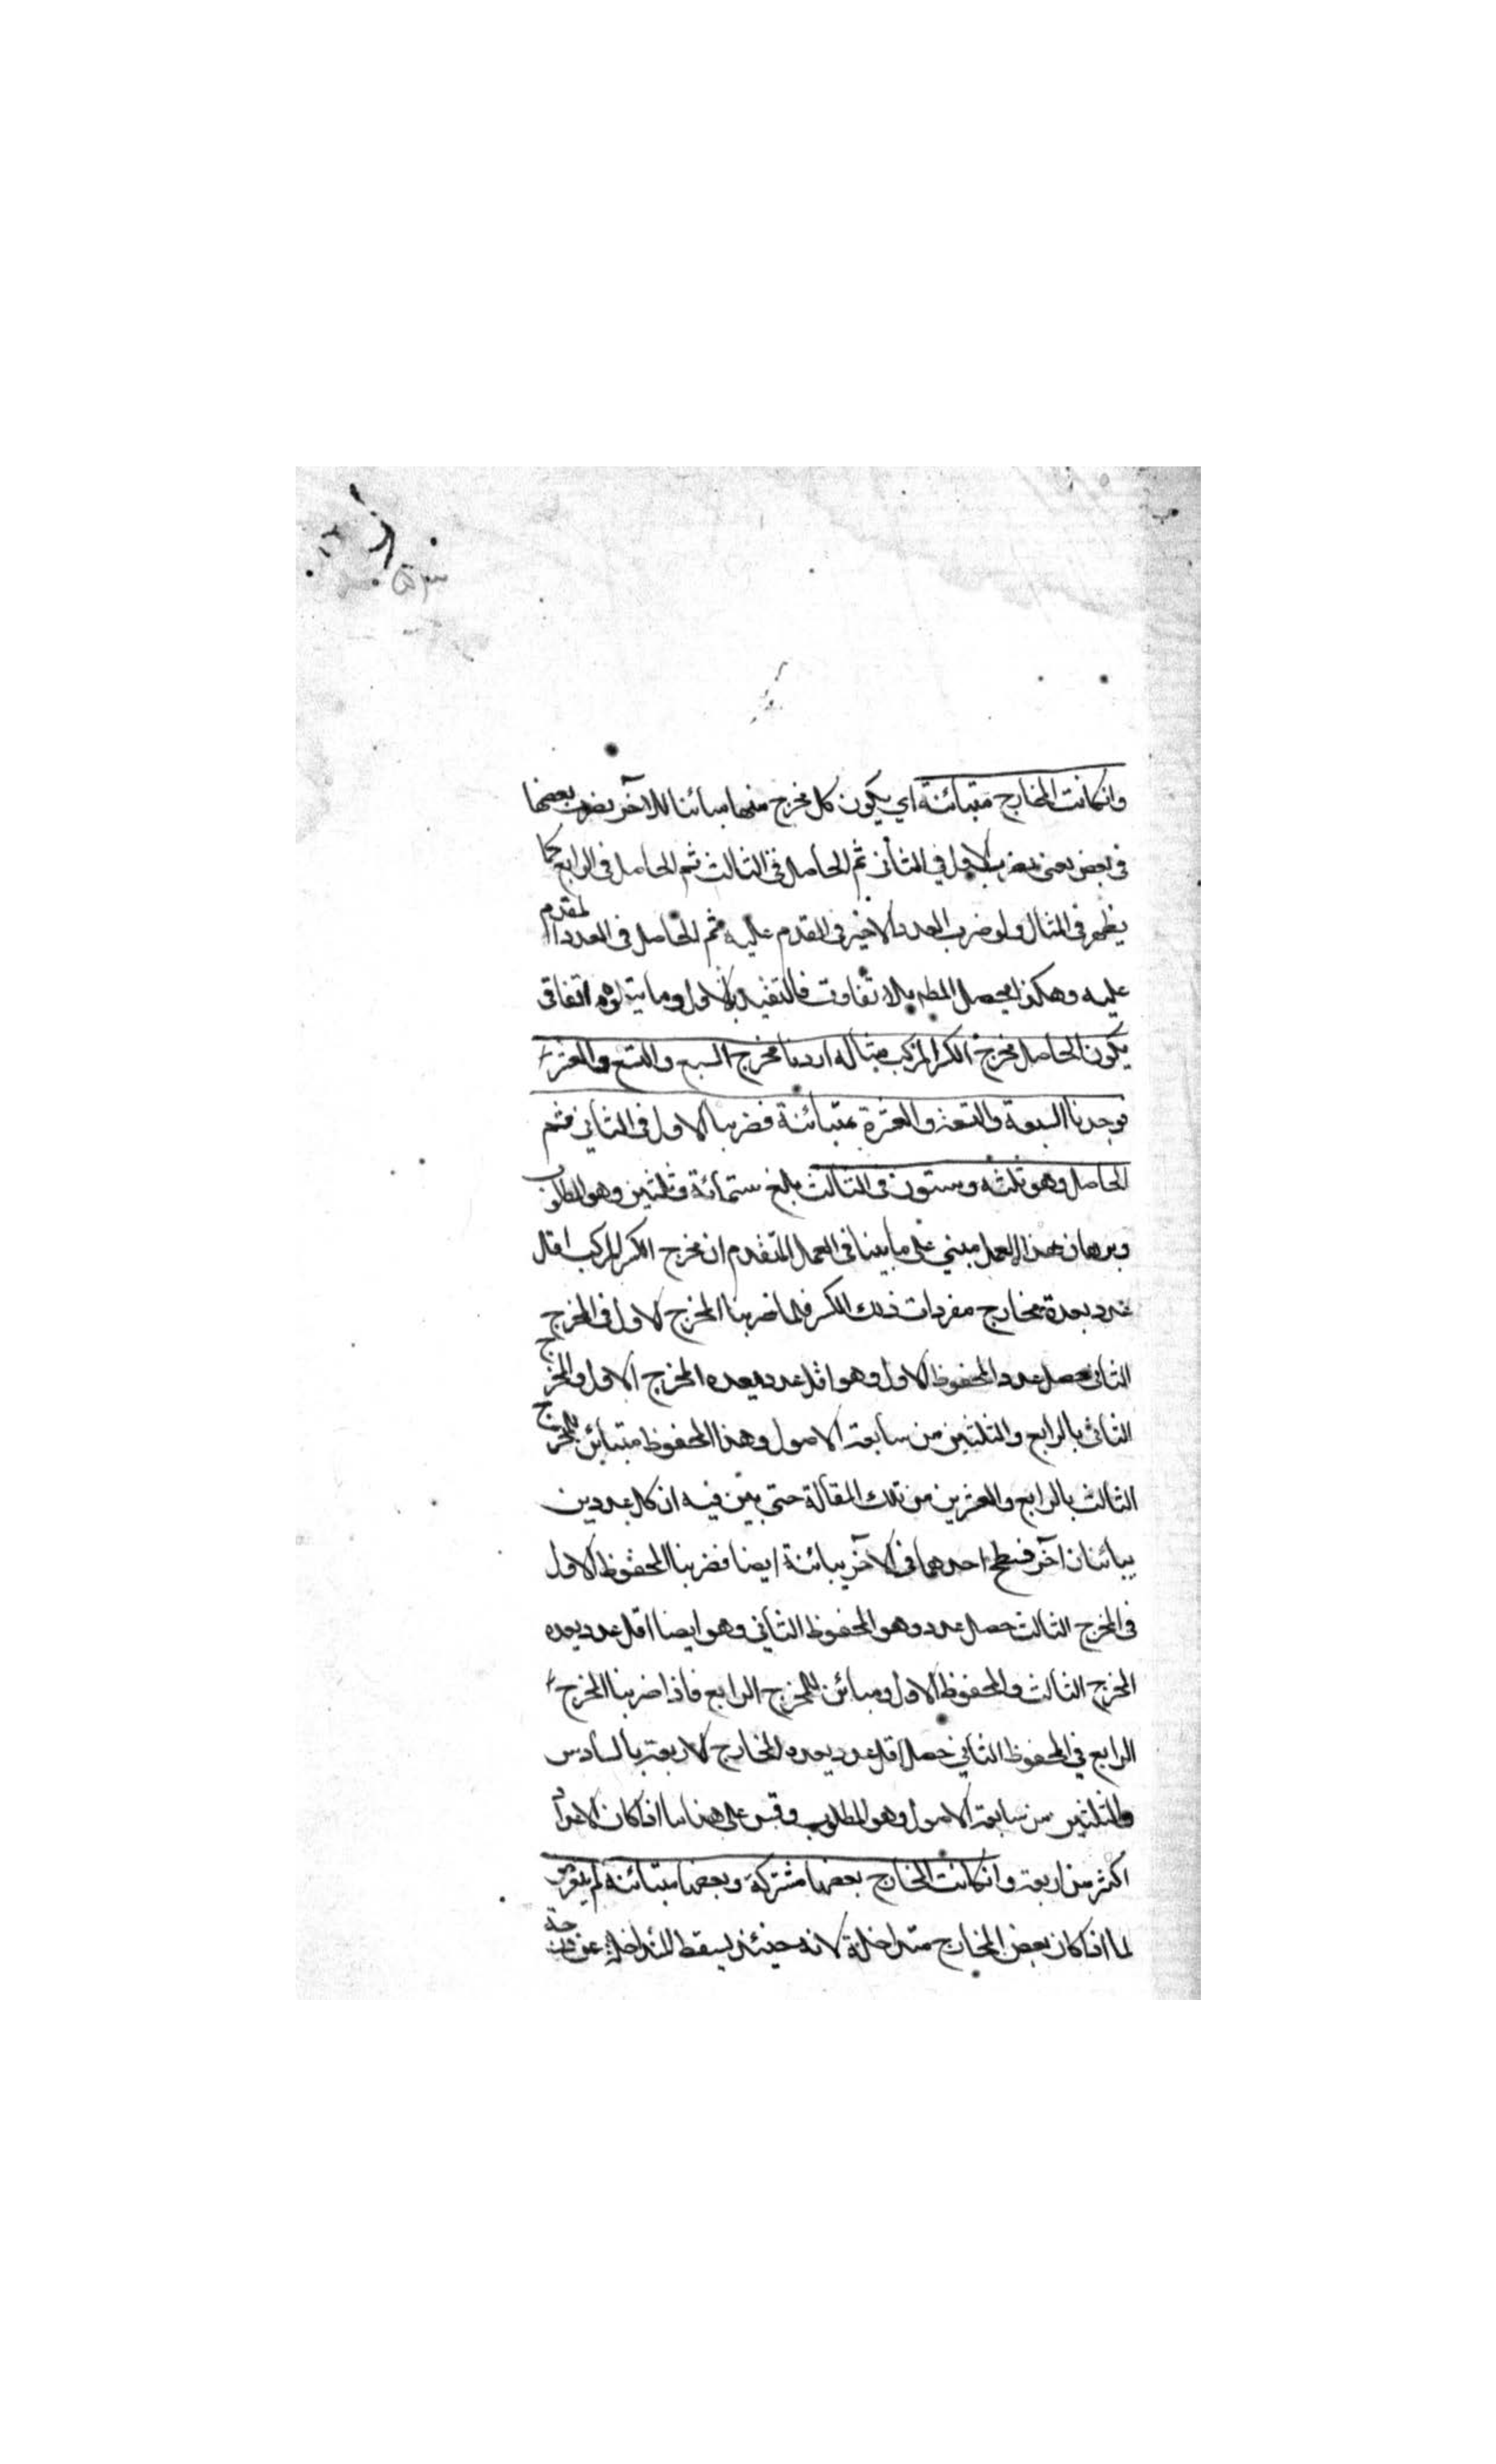 ٥٣
وانكانت المخارج متبائنة اي يكون كل مخرج منها مبائنا للآخر يضرب بعضها
في بعض يعني يضرب الاول في الثاني ثم الحاصل في الثالث ثم الحاصل في الرابع كما
يظهر في المثال ولو ضرب العدد الاخير في المقدم عليه ثم الحاصل في العدد المقدم
عليه وهكذا يحصل المط بلا تفاوت فالتقييد بالاول وما يتلوه اتفاقي
يكون الحاصل مخرج الكسر المركب مثاله اردنا مخرج السبع والتسع والعشر
فوجدنا السبعة والتسعة والعشرة متبائنة فضربنا الاول في الثاني ثم
الحاصل وهو ثلثه وستون في الثالث بلغ ستمائة وثلثين وهو المطلوب
وبرهان هذا العمل مبني على ما بينا في العمل المتقدم ان مخرج الكسر المركب اقل
عدد بعده مخارج مفردات ذلك الكسر فلما ضربنا المخرج الاول في المخرج
الثاني حصل عدد المحفوظ الاول وهو اقل عدد يعده المخرج الاول والمخرج
الثاني بالرابع والثلثين من سابعة الاصول وهذا المحفوظ متبائن للمخرج
الثالث بالرابع والعشرين من تلك المقالة حتى بين فيه ان كل عددين
يبائنان آخر فسطح احدهما في الآخر يبائنة ايضا فضربنا المحفوظ الاول
في المخرج الثالث حصل عدد وهو المحفوظ الثاني وهو ايضا اقل عدد يعده
المخرج الثالث والمحفوظ الاول ومبائن للمخرج الرابع فاذا ضربنا المخرج
الرابع في المحفوظ الثاني حصل اقل عدد يعده المخارج الاربعة بالسادس
والثلثين من سابعة الاصول وهو المطلوب وقس على هذا ما اذا كان الاعداد
اكثر من اربعة وانكانت المخارج بعضها مشتركة وبعضها متبائنة لم يتعرض
لما اذا كان بعض المخارج متداخلة لانه حينئذ يسقط المتداخلة عن